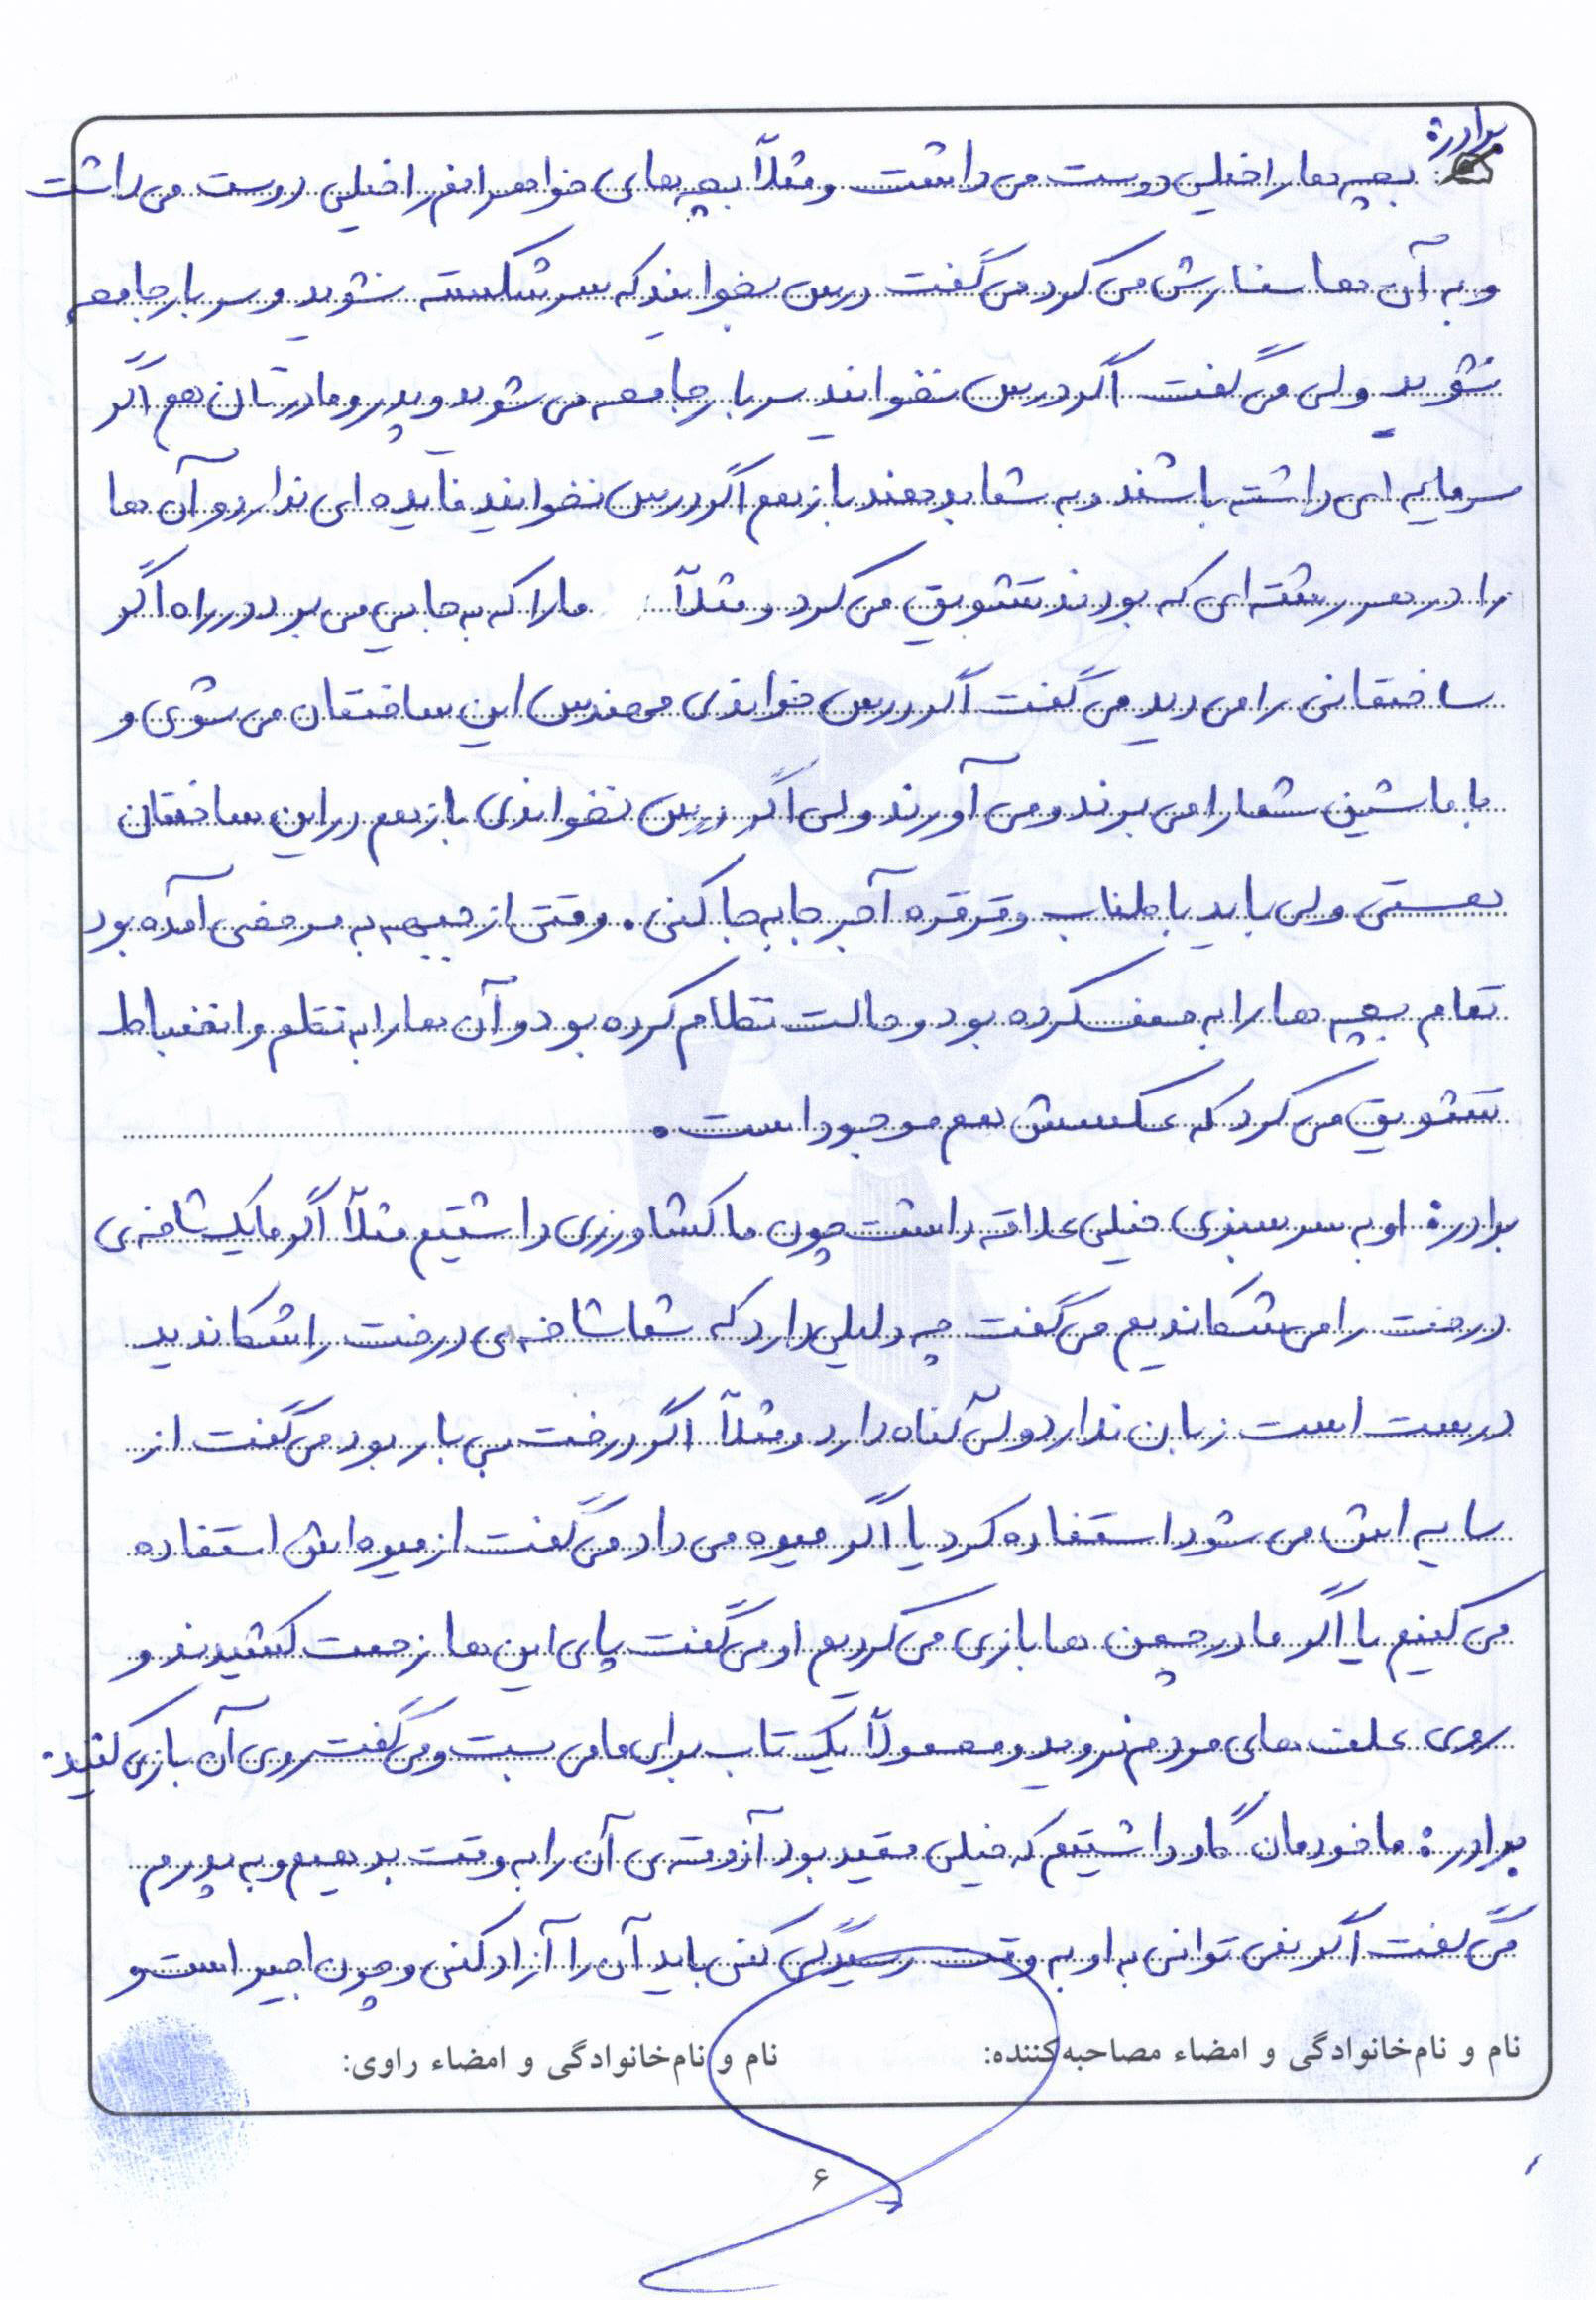 برادر: بچه ها را خیلی دوست می داشت و مثلاً بچه های خواهرانم را خیلی دوست می داشت
و به آن ها سفارش می کرد می گفت درس بخوانید که سرشکسته نشوید و سربار جامعه
نشوید ولی می گفت اگر درس نخوانید سربار جامعه می شوید و پدر و مادرتان هم اگر
سرمایه ای داشته باشند و به شما بدهند باز هم اگر درس نخوانید فایده ای ندارد و آن ها
را در هر رشته ای که بودند تشویق می کرد و مثلاً ما را که به جایی می برد در راه اگر
ساختمانی را می دید می گفت اگر درس خواندی مهندس این ساختمان می شوی و
با ماشین شما را می برند و می آورند ولی اگر درس نخواندی باز هم در این ساختمان
هستی ولی باید با طناب و قرقره آجر جابه جا کنی. وقتی از جبهه به مرخصی آمده بود
تمام بچه ها را به صف کرده بود و حالت نظام کرده بود و آن ها را به نظم و انضباط
تشویق می کرد که عکسش هم موجود است.
برادر: او به سرسبزی خیلی علاقه داشت چون ما کشاورزی داشتیم مثلاً اگر ما یک شاخه ی
درخت را می شکاندیم می گفت چه دلیلی دارد که شما شاخه ی درخت را شکاندید
درست است زبان ندارد ولی گناه دارد و مثلاً اگر درخت بی بار بود می گفت از
سایه اش می شود استفاده کرد یا اگر میوه می داد می گفت از میوه اش استفاده
می کنیم یا اگر ما در چمن ها بازی می کردیم او می گفت پای این ها زحمت کشیدند و
روی علف های مردم نروید و معمولاً یک تاب برای ما می بست و می گفت روی آن بازی کنید.
برادر: ما خودمان گاو داشتیم که خیلی مقید بود آزوقه ی آن را به وقت بدهیم و به پدرم
می گفت اگر نمی توانی به او به وقت رسیدگی کنی باید آن را آزاد کنی و چون اجیر است و
نام و نام‌خانوادگی و امضاء مصاحبه‌کننده: نام و نام‌خانوادگی و امضاء راوی:
۶